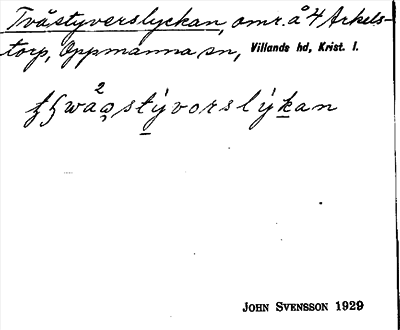 Tvåstyverslyckan, omr. å 4 Arkels-
torp, Oppmanna sn, Villands hd, Krist. l.
JOHN SVENSSON 1929